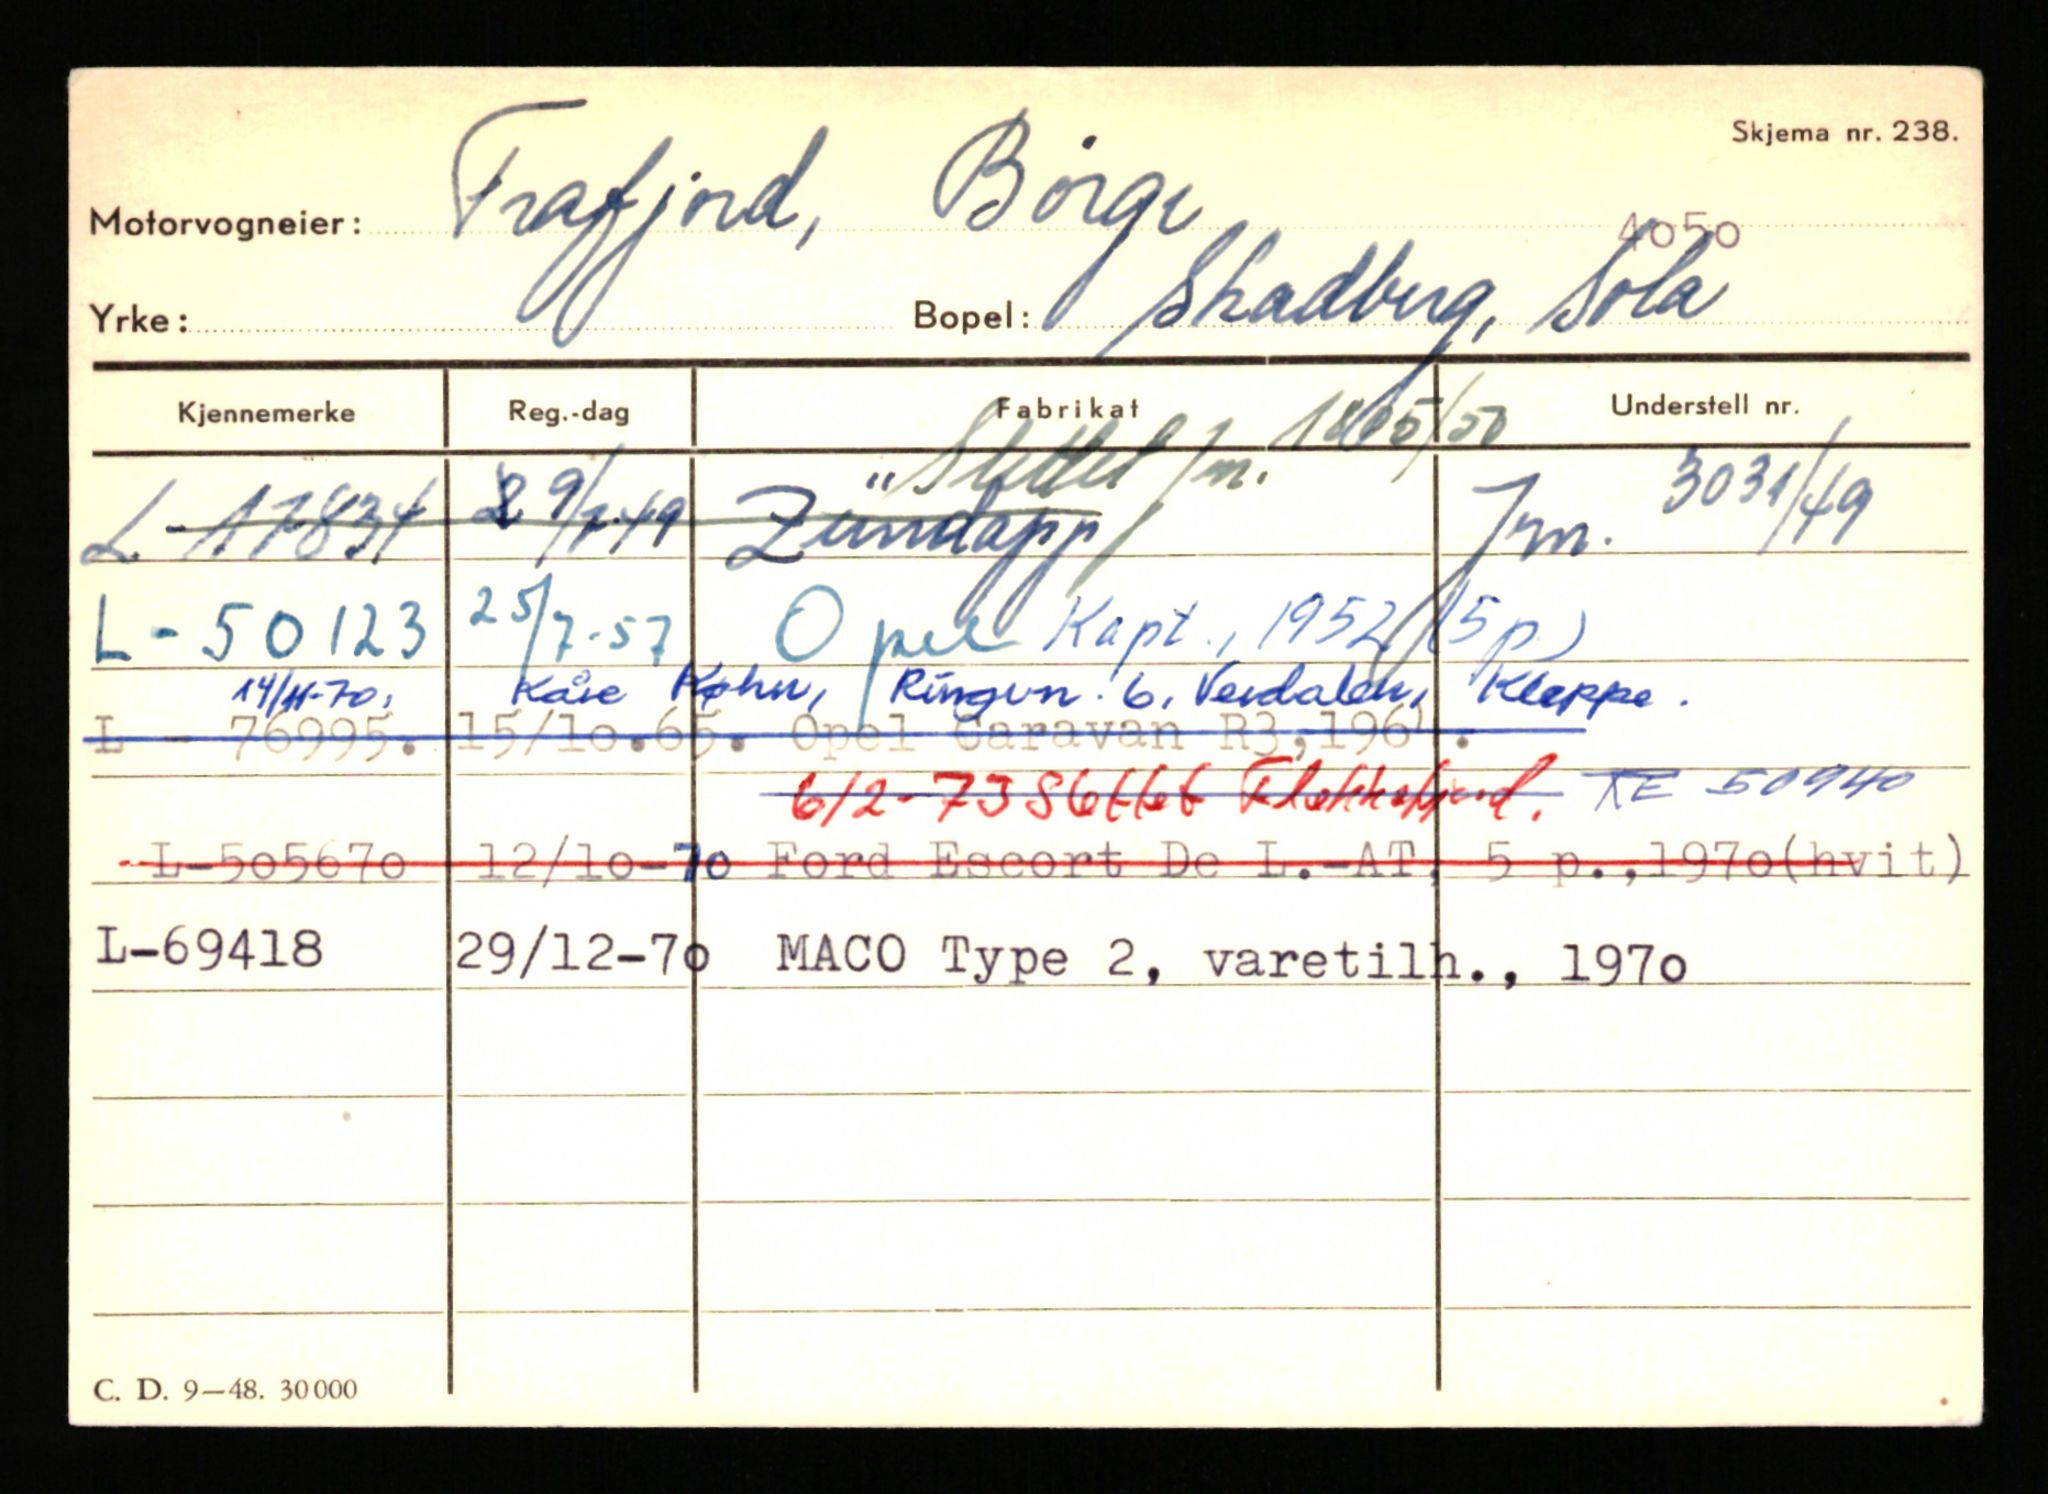 Skjema nr. 238.
Motorvogneier: Frafjord, Börge
4050
Yrke: Bopel: Skadberg, Sola
Kjennemerke Reg.-dag Fabrikat Understell nr.
"Slettet Jm. 1865/50
L-17834 29/7.49 Zündapp Jm. 3031/49
L-50123 25/7-57 Opel Kapt., 1952 (5p)
14/11-70, Kåre Køhn, Ringvn. 6, Verdalen, Kleppe.
L - 76995. 15/10.65. Opel Caravan R3,1964.
6/2-73 Slettet Flekkefjord. KE 50940
L-505670 12/10-70 Ford Escort De L.-AT, 5 p.,1970(hvit)
L-69418 29/12-70 MACO Type 2, varetilh., 1970
C. D. 9—48. 30000